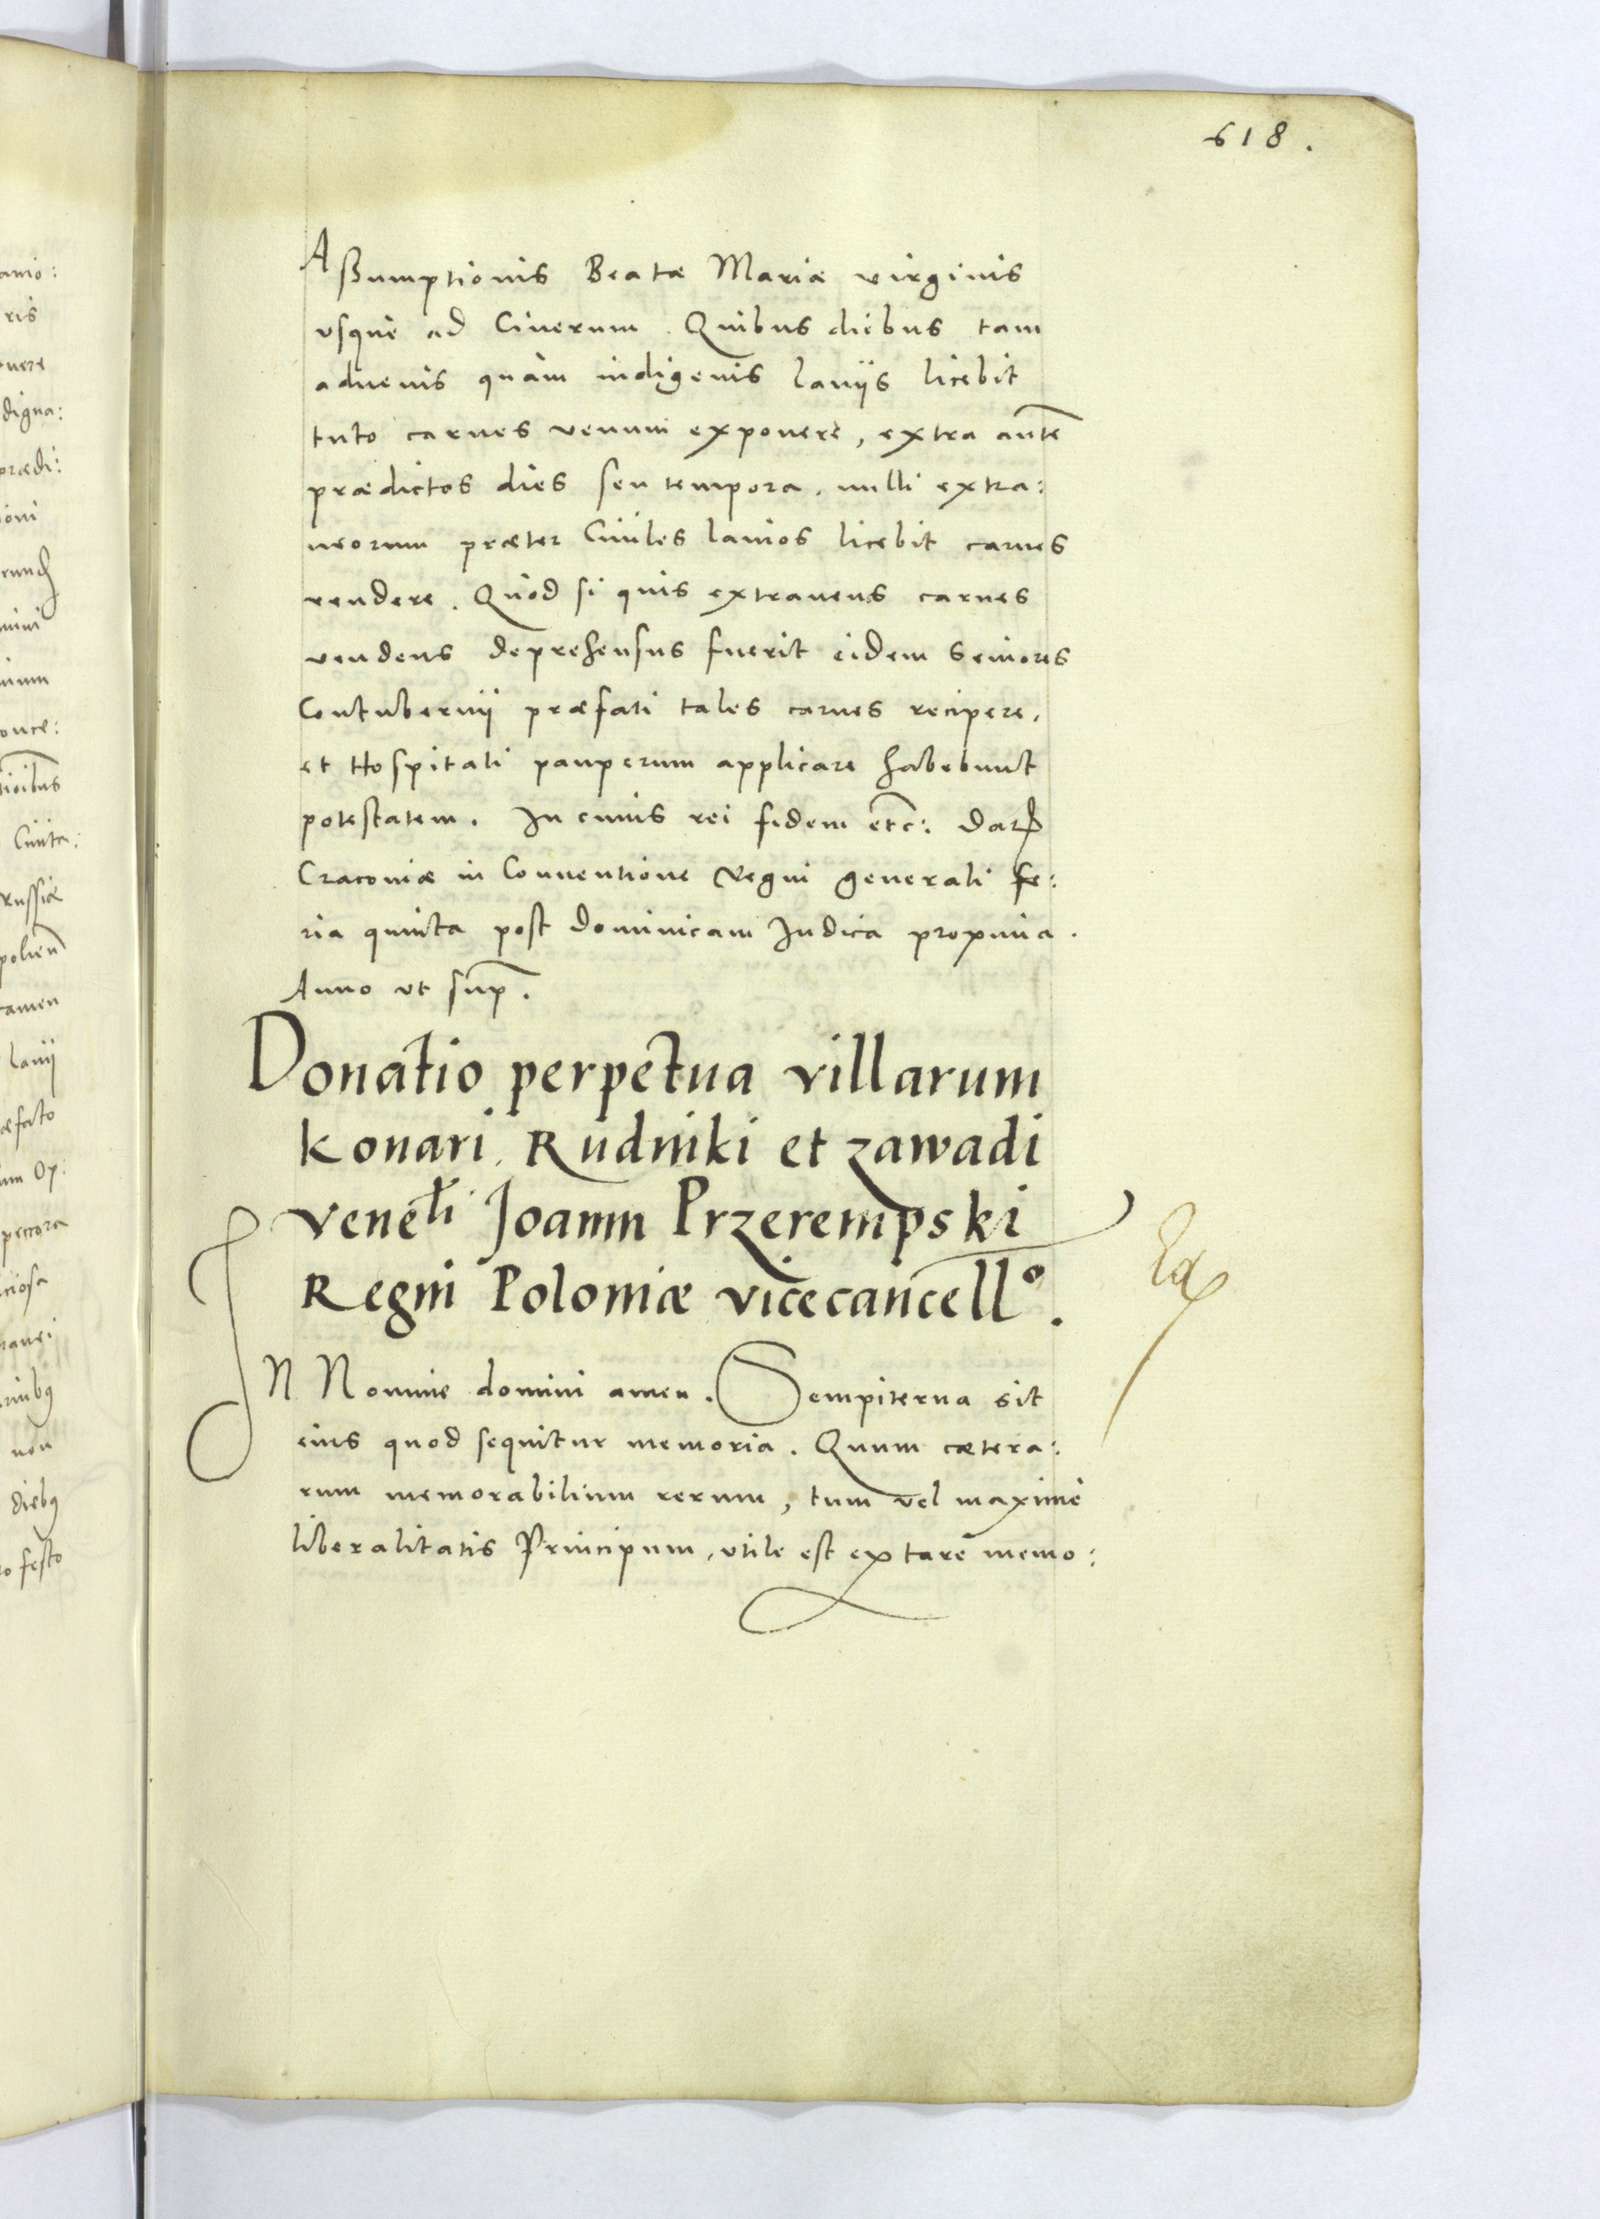 618.
Aßumptionis Beatæ Mariæ virginis
vsque ad Cinerum. Quibus diebus tam
aduenis quàm indigenis laniis licebit
tuto carnes venum exponere, extra aute͂
prædictos dies seu tempora, nulli extra:
neorum præter Ciuiles lanios licebit carnes
vendere. Quod si quis extraneus carnes
vendens deprehensus fuerit eidem Seniores
Contubernii præfati tales carnes recipere,
et Hospitali pauperum applicare habebunt
potestatem. In cuius rei fidem etc: Dat
Cracoviæ in Conuentione Regni generali fe:
ria quinta post dominicam Iudica proxima.
Anno vt sup.
Donatio perpetua villarum
Konari, Rudniki et zawadi
Veneli Joanni Przerempski
Regni Poloniæ vicecancello.
IN Nomine domini amen. Sempiterna sit
eius quod sequitur memoria. Quum cætera:
rum memorabilium rerum, tum vel maxime
liberalitatis Principum, vtile est extare memo: